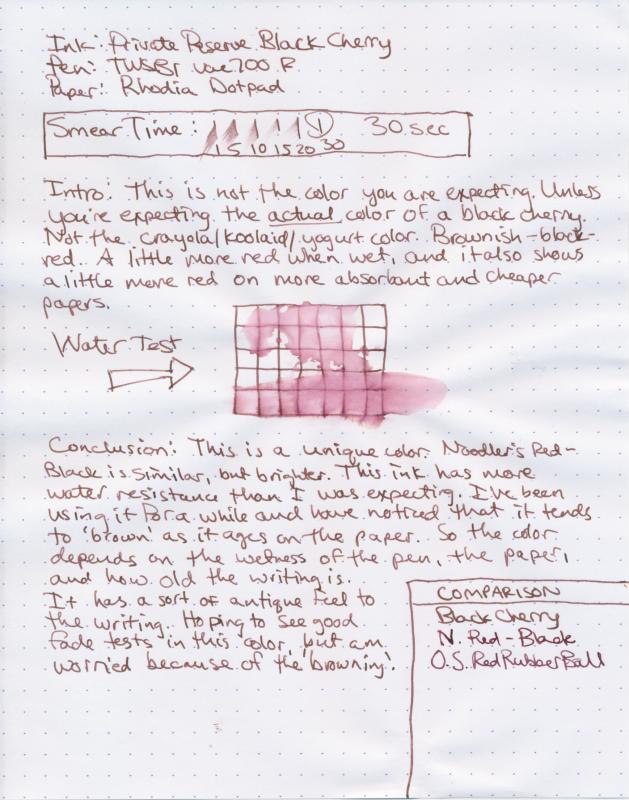 Ink: Private Reserve Black Cherry
Pen: TWSBI Vac 700 F
Paper: Rhodia Dotpad
Smear Time: 1 5 10 15 20 30 30 sec
Intro: This is not the color you are expecting. Unless
you're expecting the actual color of a black cherry.
Not the crayola/koolaid/yogurt color. Brownish-black-
red. A little more red when wet, and it also shows
a little more red on more absorbant and cheaper
papers.
Water Test
Conclusion: This is a unique color. Noodler's Red-
Black is similar, but brighter. This ink has more
water resistance than I was expecting. I've been
using it for a while and have noticed that it tends
to 'brown' as it ages on the paper. So the color
depends on the wetness of the pen, the paper,
and how old the writing is.
It has a sort of antique feel to
the writing. Hoping to see good
fade tests in this color, but am
worried because of the 'browning'.
COMPARISON
Black Cherry
N. Red-Black
O.S. Red Rubber Ball